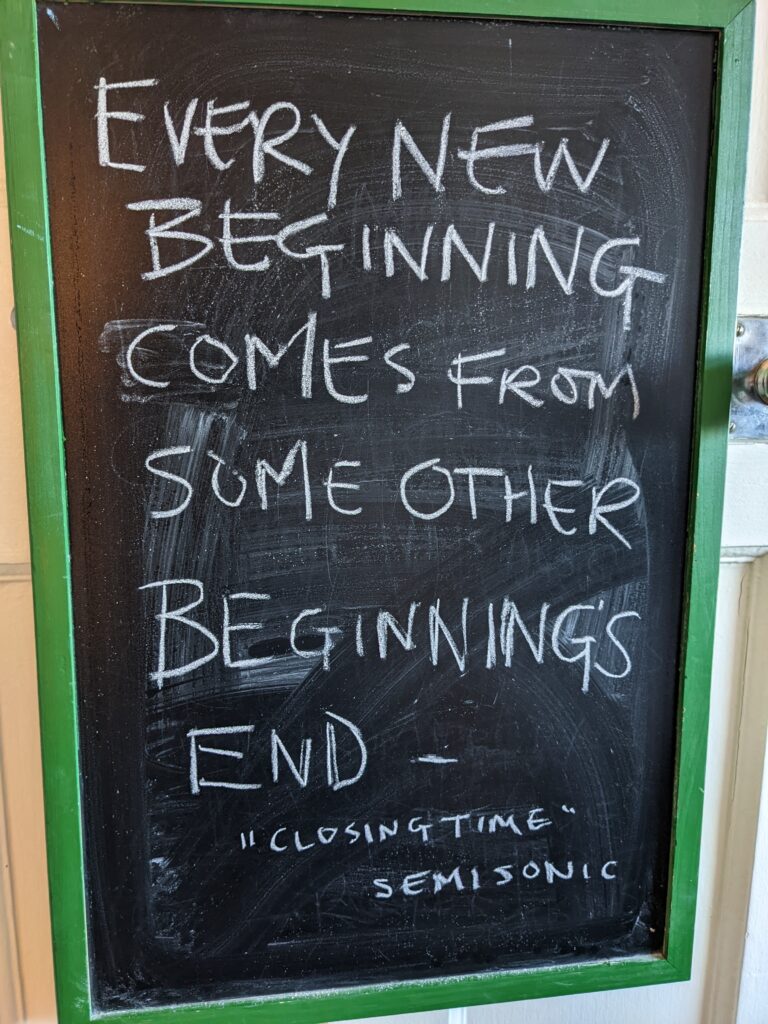 EVERY NEW
BEGINNING
COMES FROM
SOME OTHER
BEGINNING'S
END -
"CLOSING TIME"
SEMISONIC